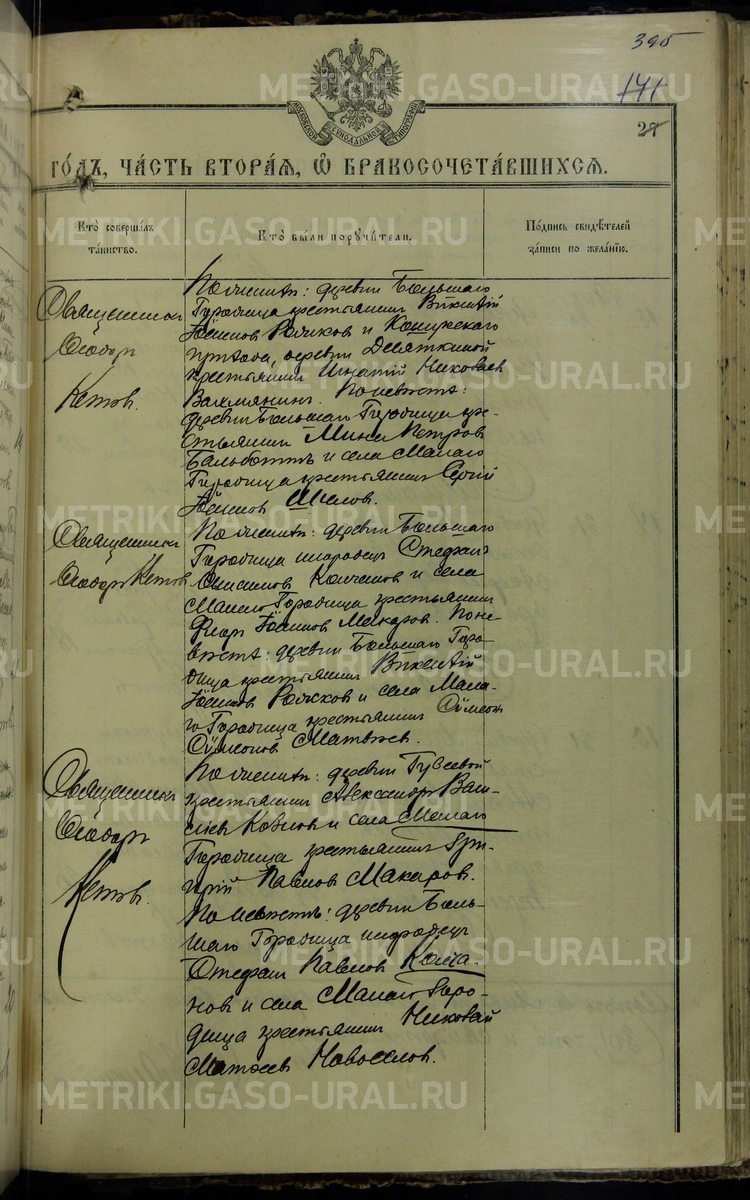 395
141
28
МОСКОВСКОЙ СѴНОДАЛЬНОЙ ТИПОГРАФІИ
го́дъ, ча́сть втора́я, ѡ҆ бракосочета́вшихся.
Кто̀ соверша́лъ
та́инство.
Кто̀ бы́ли порꙋчи́тели.
По́дпись свидѣ́телей
за́писи по жела́нїю.
Священникъ
Ѳеодоръ
Кетовъ.
По женихѣ: деревни Большаго
Городища крестьянинъ Викентій
Іоанновъ Рожковъ и
прихода, деревни Девяткиной
крестьянинъ Игнатій Николаевъ
Вахмянинъ. По невѣстѣ:
деревни Большаго Городища кре-
стьянинъ Мина Петровъ
и села Малаго
Городища крестьянинъ Сергій
Іоанновъ Шиловъ.
Священникъ
Ѳеодоръ Кетовъ
По женихѣ: деревни Большаго
Городища инородецъ Стефанъ
Онисимовъ и села
Малаго Городища крестьянинъ
Іоанновъ Макаровъ. По не
вѣстѣ: деревни Большаго Горо-
дища крестьянинъ Викентій
Іоанновъ Рожковъ и села Мала-
го Городища крестьянинъ Сѵмеонъ
Сѵмеоновъ Матвѣевъ.
Священникъ
Ѳеодоръ
Кетовъ.
По женихѣ: деревни Гусевой
крестьянинъ Александръ Васи-
ліевъ Козловъ и села Малаго
Городища крестьянинъ Гри-
горій Павловъ Макаровъ.
По невѣстѣ: деревни Боль-
шаго Городища инородецъ
Стефанъ Павловъ Колча-
новъ и села Малаго Горо-
дища крестьянинъ Николай
Матѳеевъ Новоселовъ.
METRIKI.GASO-URAL.RU